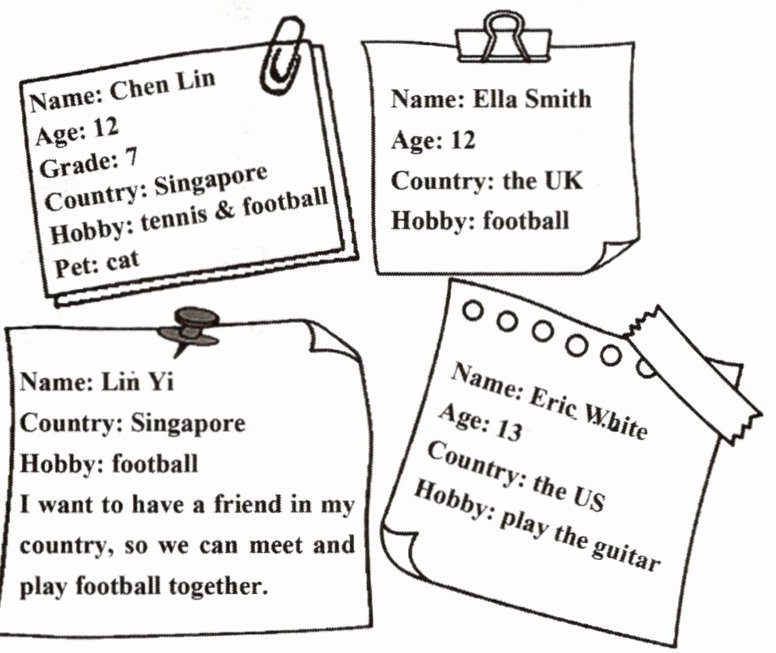 Name: Chen Lin
Age: 12
Grade: 7
Country: Singapore
Hobby: tennis & football
Pet: cat
Name: Ella Smith
Age: 12
Country: the UK
Hobby: football
Name: Lin Yi
Country: Singapore
Hobby: football
I want to have a friend in my
country, so we can meet and
play football together.
Name: Eric White
Age: 13
Country: the US
Hobby: play the guitar